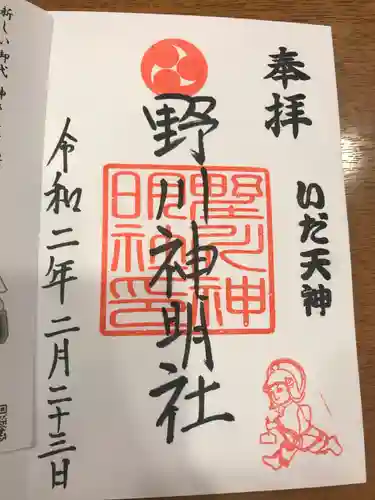 奉拝
いだ天神
野川神明社
野川神
明神社印
令和二年二月二十三日